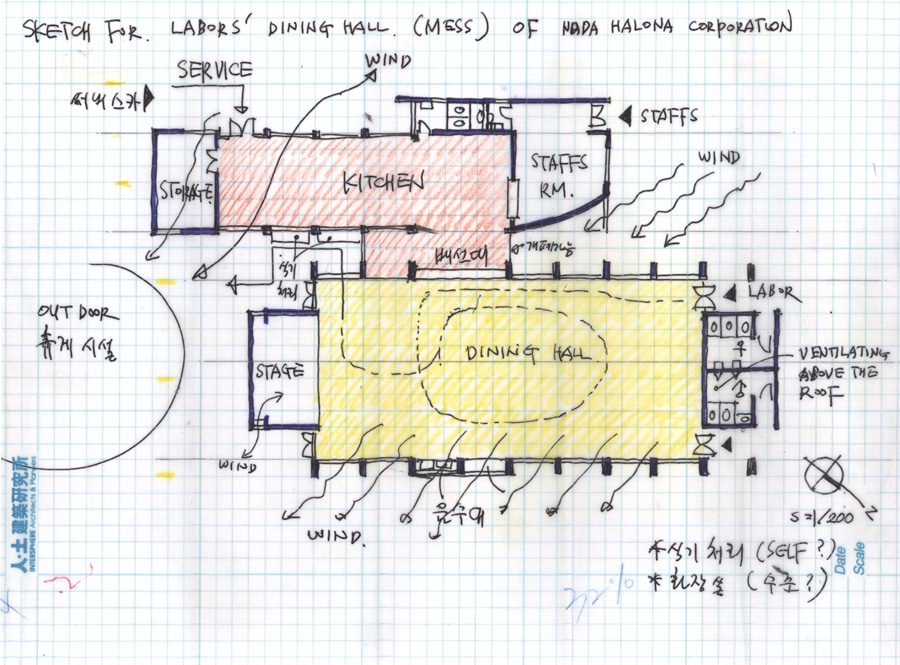 SKETCH FOR. LABORS' DINING HALL. (MESS) OF NADA HALONA CORPORATION
WIND
SERVICE
서비스카
STAFFS
STORAGE
KITCHEN
STAFFS
RM.
WIND
배선대
식기
LABOR
OUT DOOR
휴게 시설
STAGE
DINING HALL
우
VENTILATING
ABOVE THE
ROOF
WIND
WIND.
음수대
N
S=1/200
*식기 처리 (SELF ?)
*화장실 (수준 ?)
Date
Scale
人·土 建築研究所
INTERSPHERE Architects & Planners